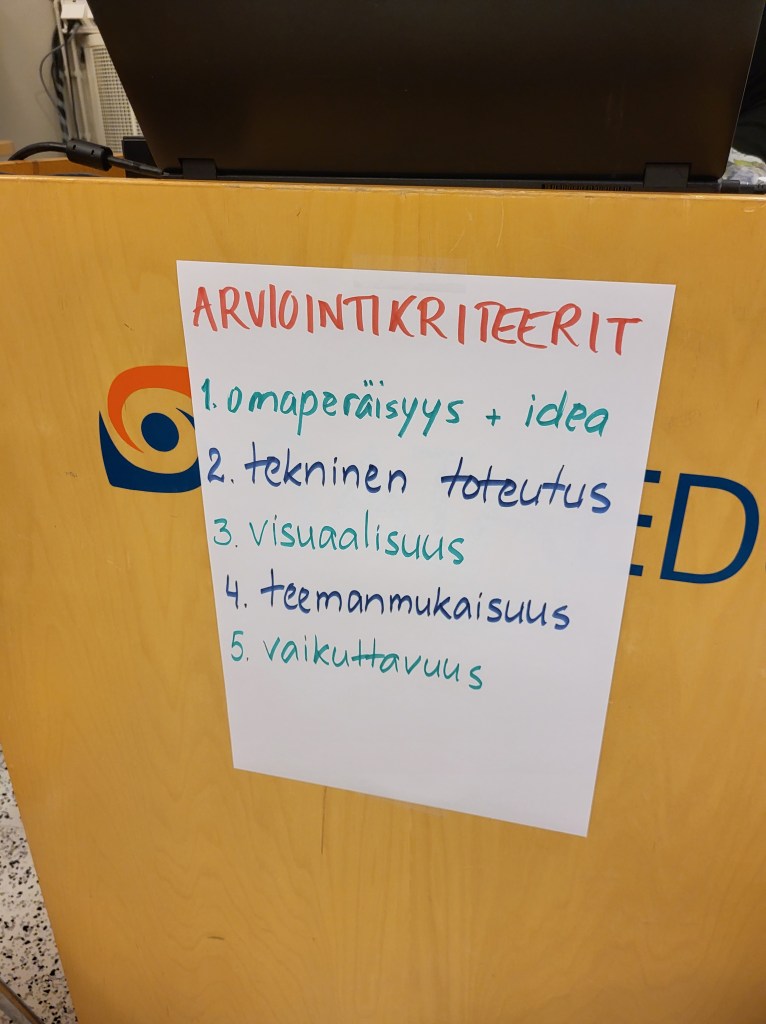 ARVIOINTIKRITEERIT
1. omaperäisyys + idea
2. tekninen toteutus
3. visuaalisuus
4. teemanmukaisuus
5. vaikuttavuus